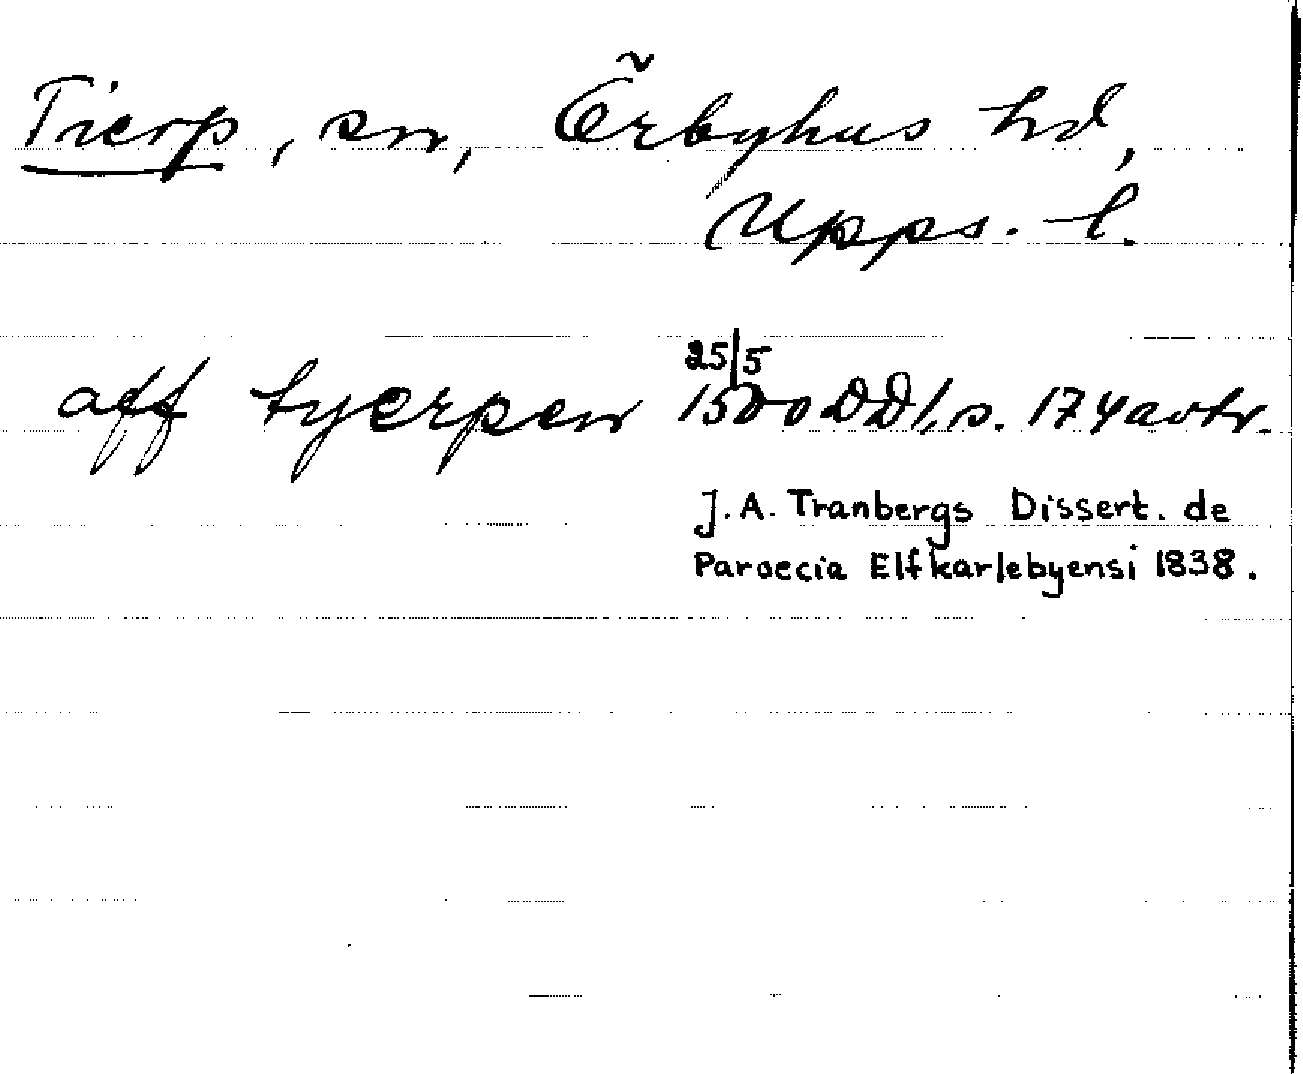 Tierp, sn, Örbyhus hd,
Upps. l.
aff tyerpen 25/5 1500 DD1, s. 174 avtr.
J. A. Tranbergs Dissert. de
Paroecia Elfkarlebyensi 1838.